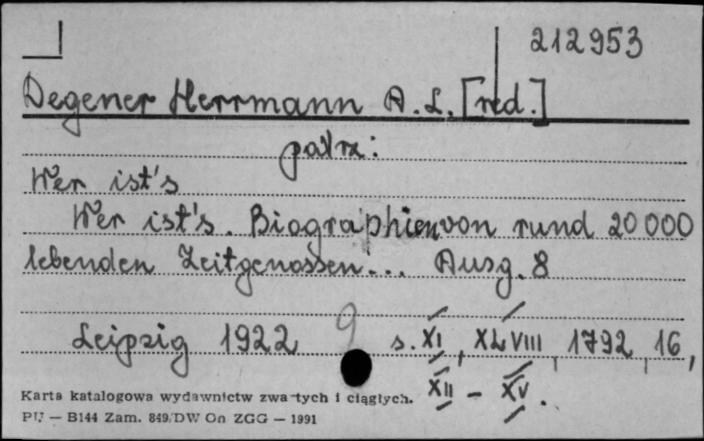 212953
Degener Herrmann A. L. [red.]
patrz:
Wer ist's
Wer ist's. Biographien von rund 20 000
lebenden Zeitgenossen... Ausg. 8
Leipzig 1922 9 s. XI, XLVIII, 1792, 16,
XII - XV.
Karta katalogowa wydawnictw zwartych i ciągłych.
PU — B144 Zam. 849/DW On ZGG — 1991